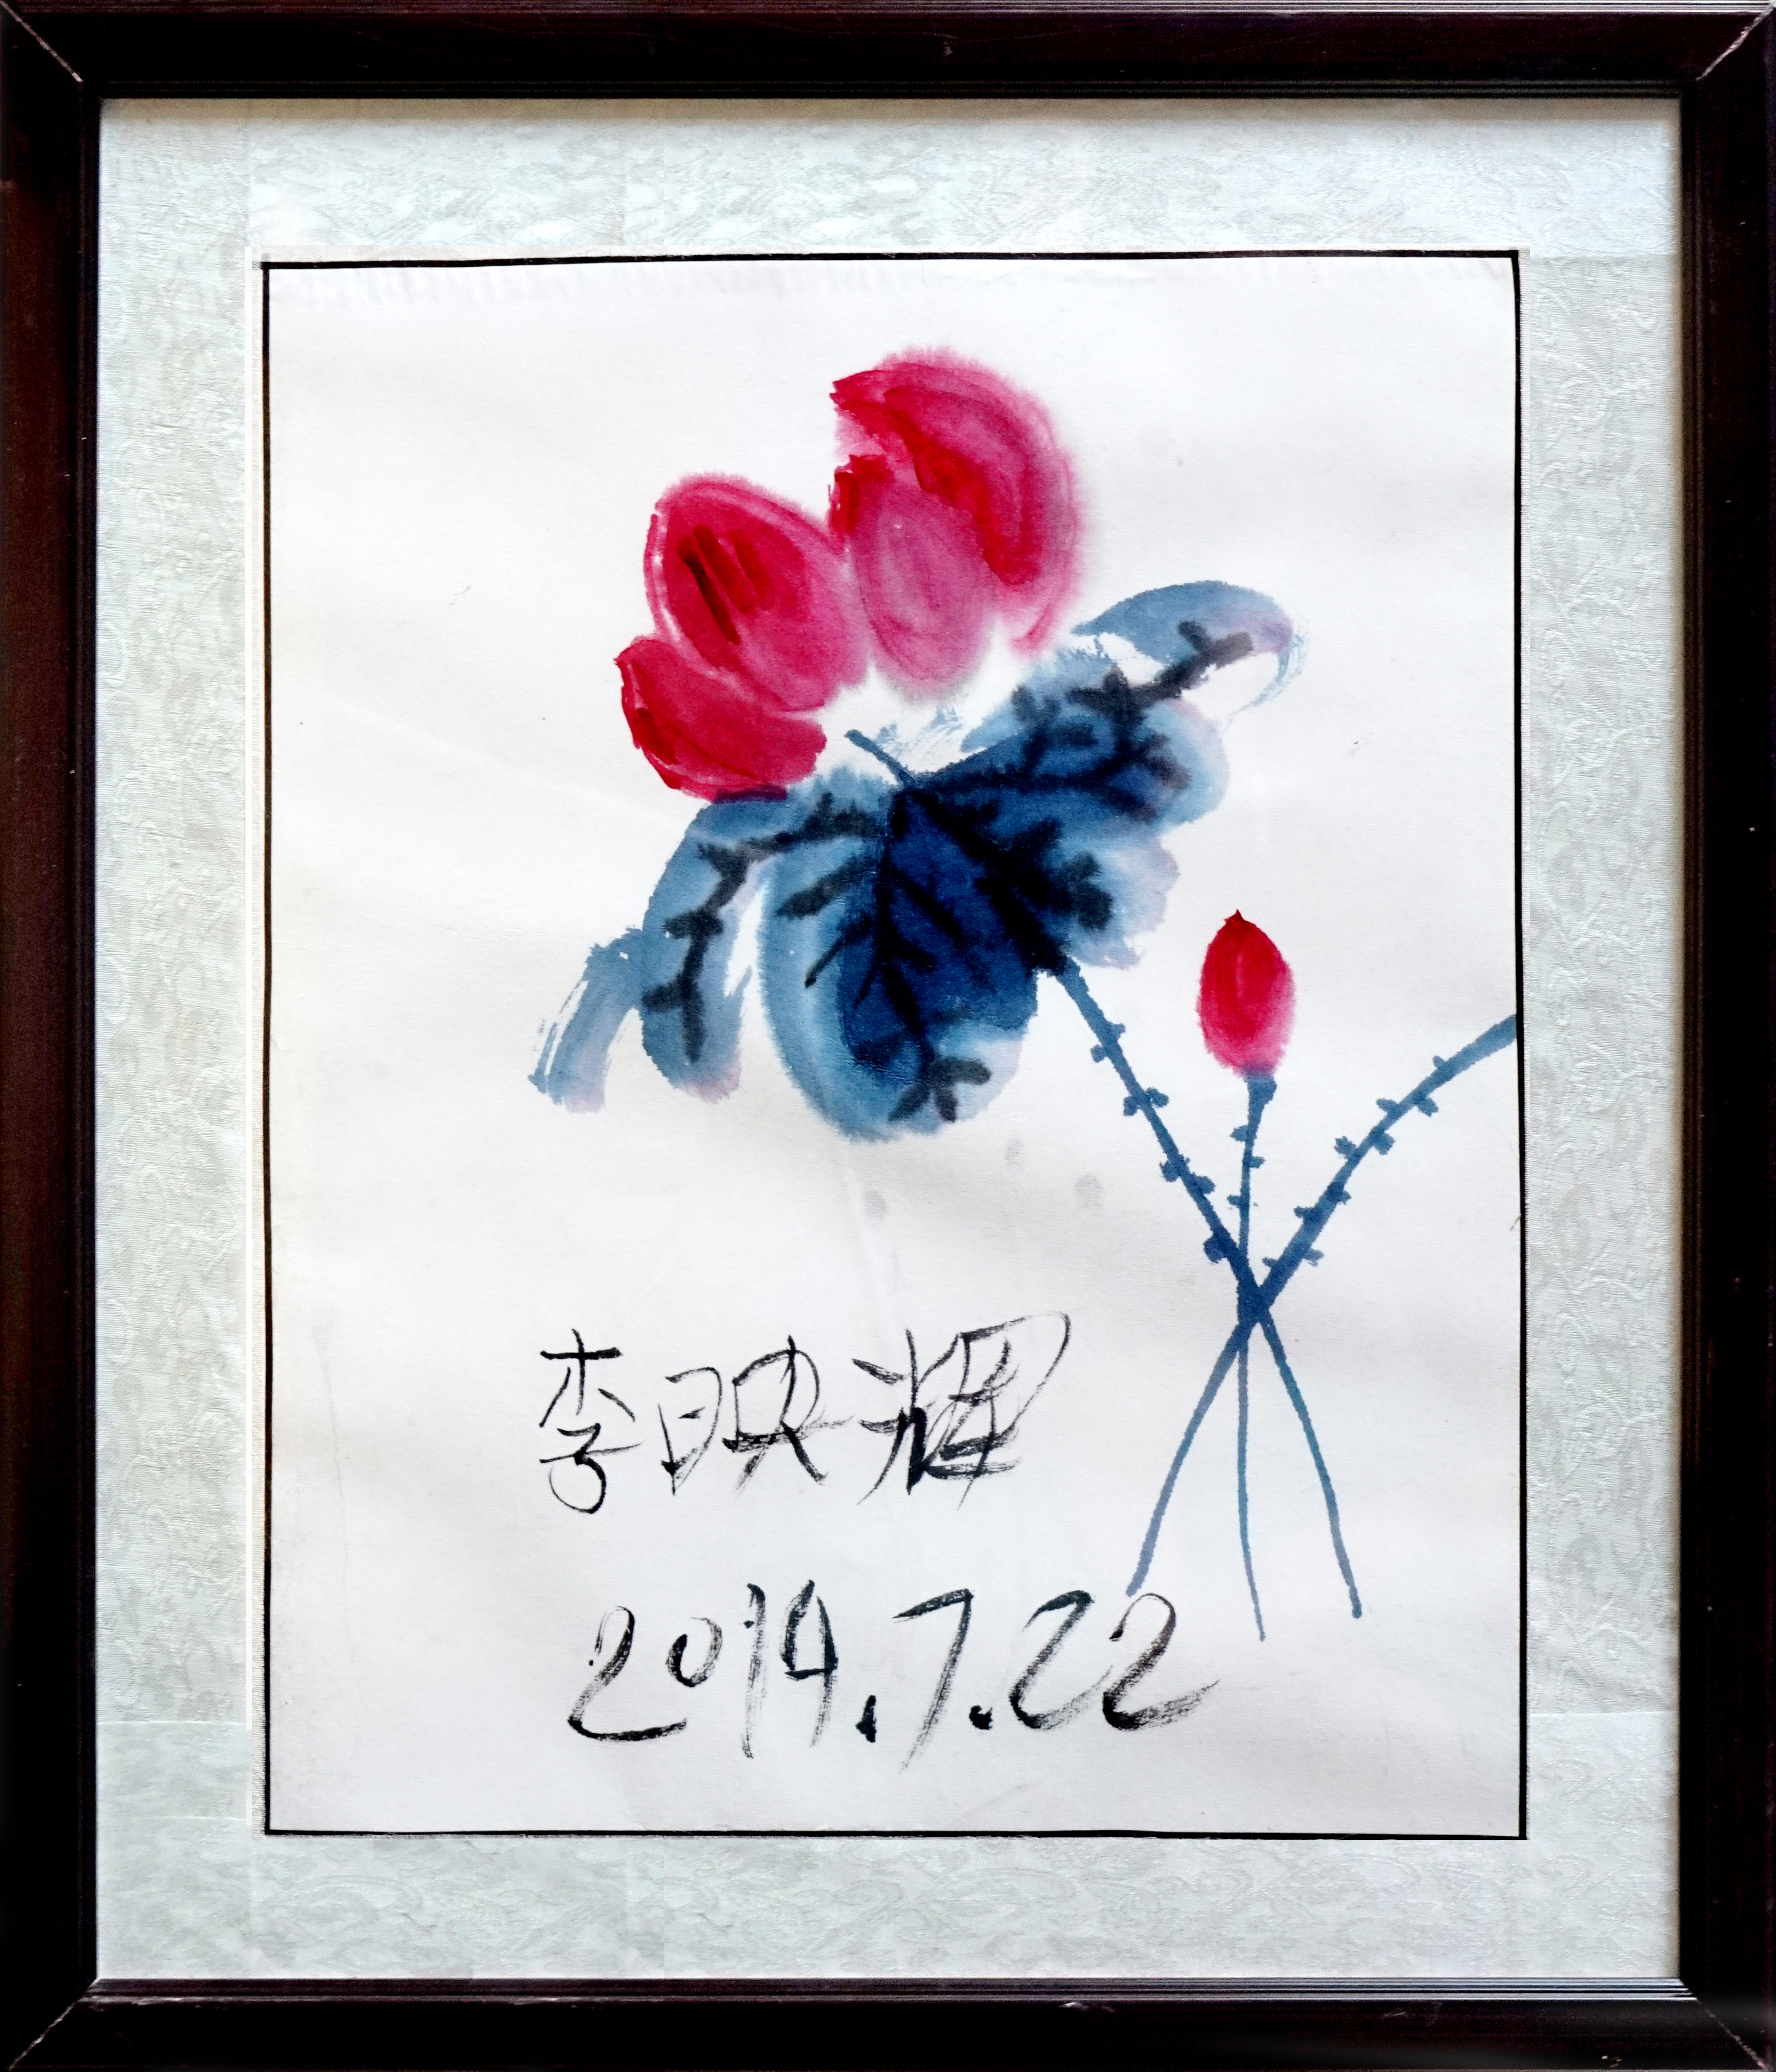 李映辉
2014.7.22